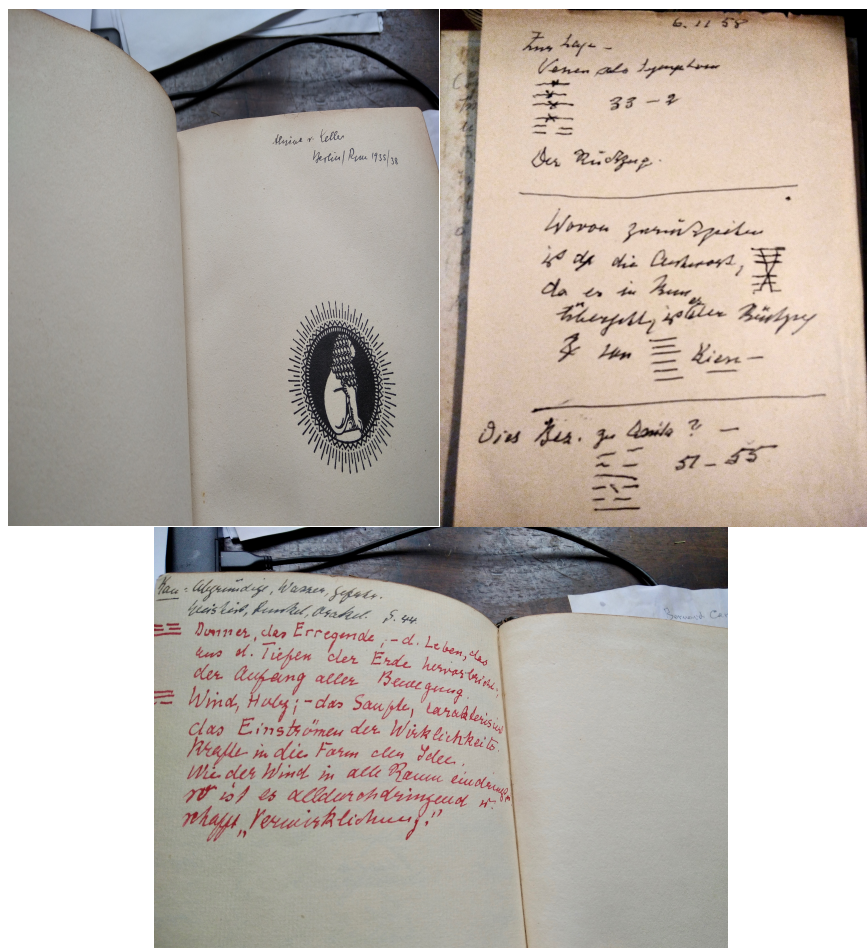 v. Keller
Berlin/Rom 1935/38
6. 11 58
Zur Lage –
Venen als Symptom
33 – 2
Der Rückzug.
Wovon zurückziehen
ist die Antwort,
da es in
übergeht, ist der Rückzug
von Kien –
Dies Bez. zu ? –
51 – 55
Kan = Abgründige, Wasser, Gefahr.
Weisheit, Dunkel, Orakel. S. 44
Donner, das Erregende, – d. Leben, das
aus d. Tiefen der Erde hervorbricht;
der Anfang aller Bewegung.
Wind, Holz; – das Sanfte, carakterisiert
das Einströmen der Wirklichkeits
Kräfte in die Form der Idee.
Wie der Wind in alle Raum eindringt
so ist es alldurchdringend u.
schafft „Verwirklichung."